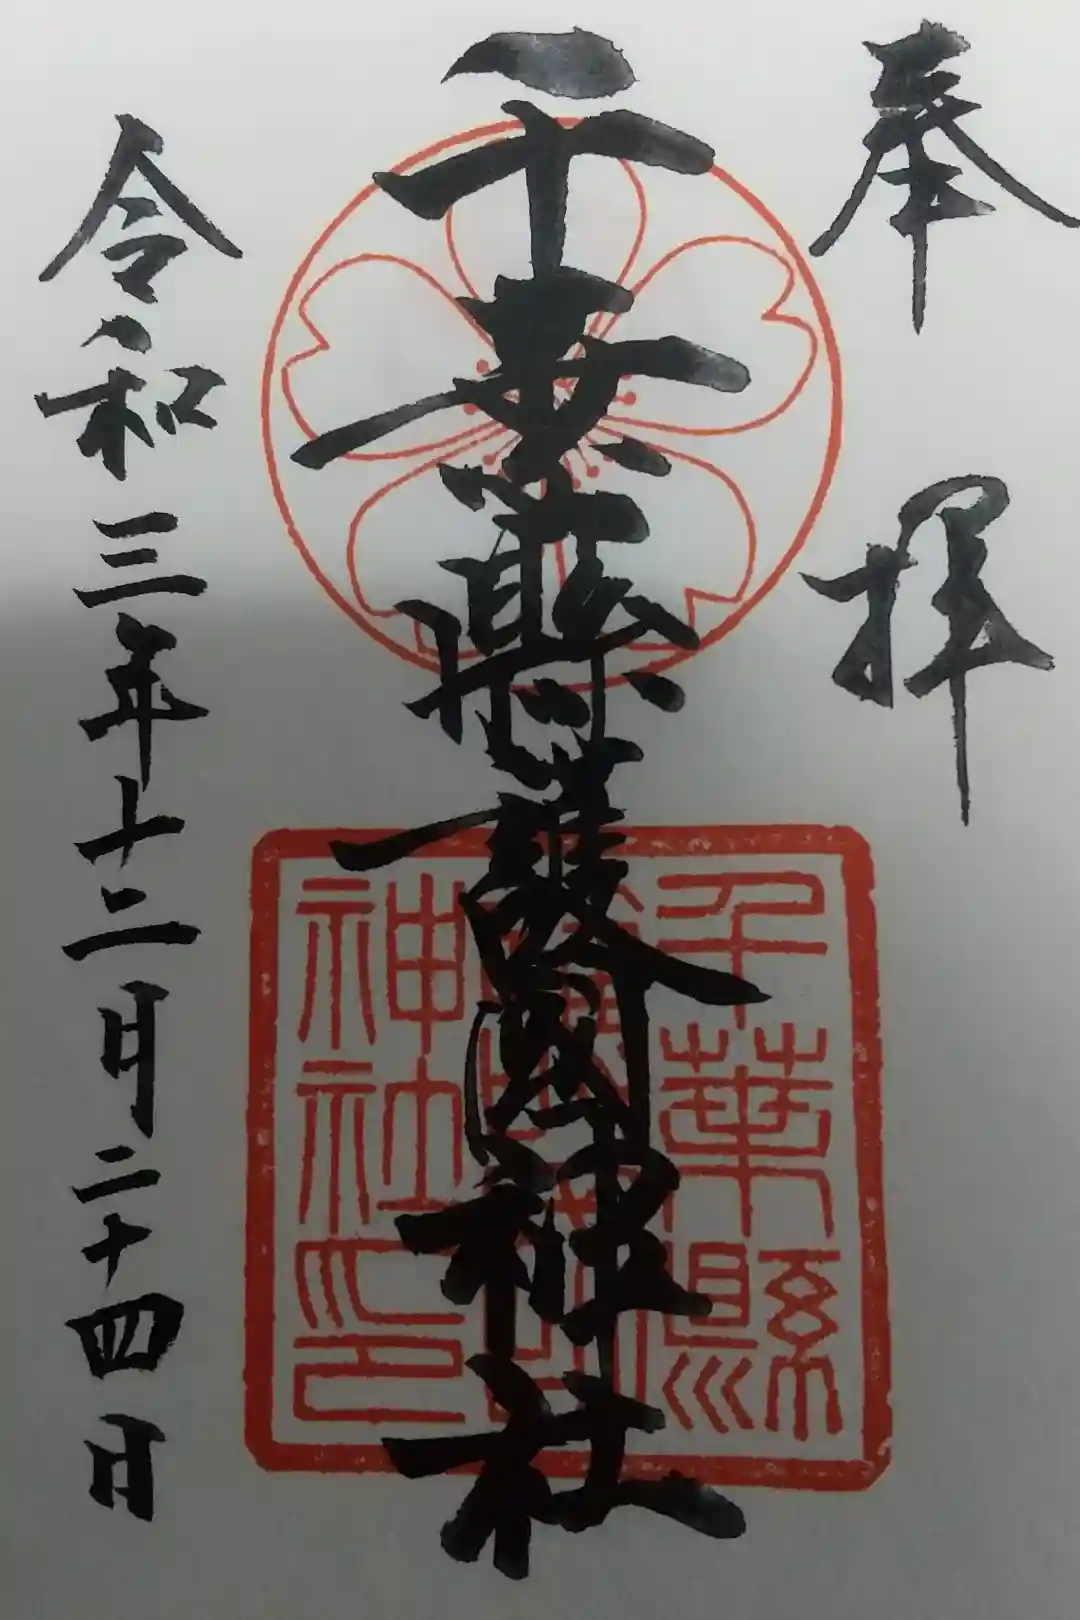 奉拝
千葉縣護國神社
千葉縣
護國
神社印
令和三年十二月二十四日